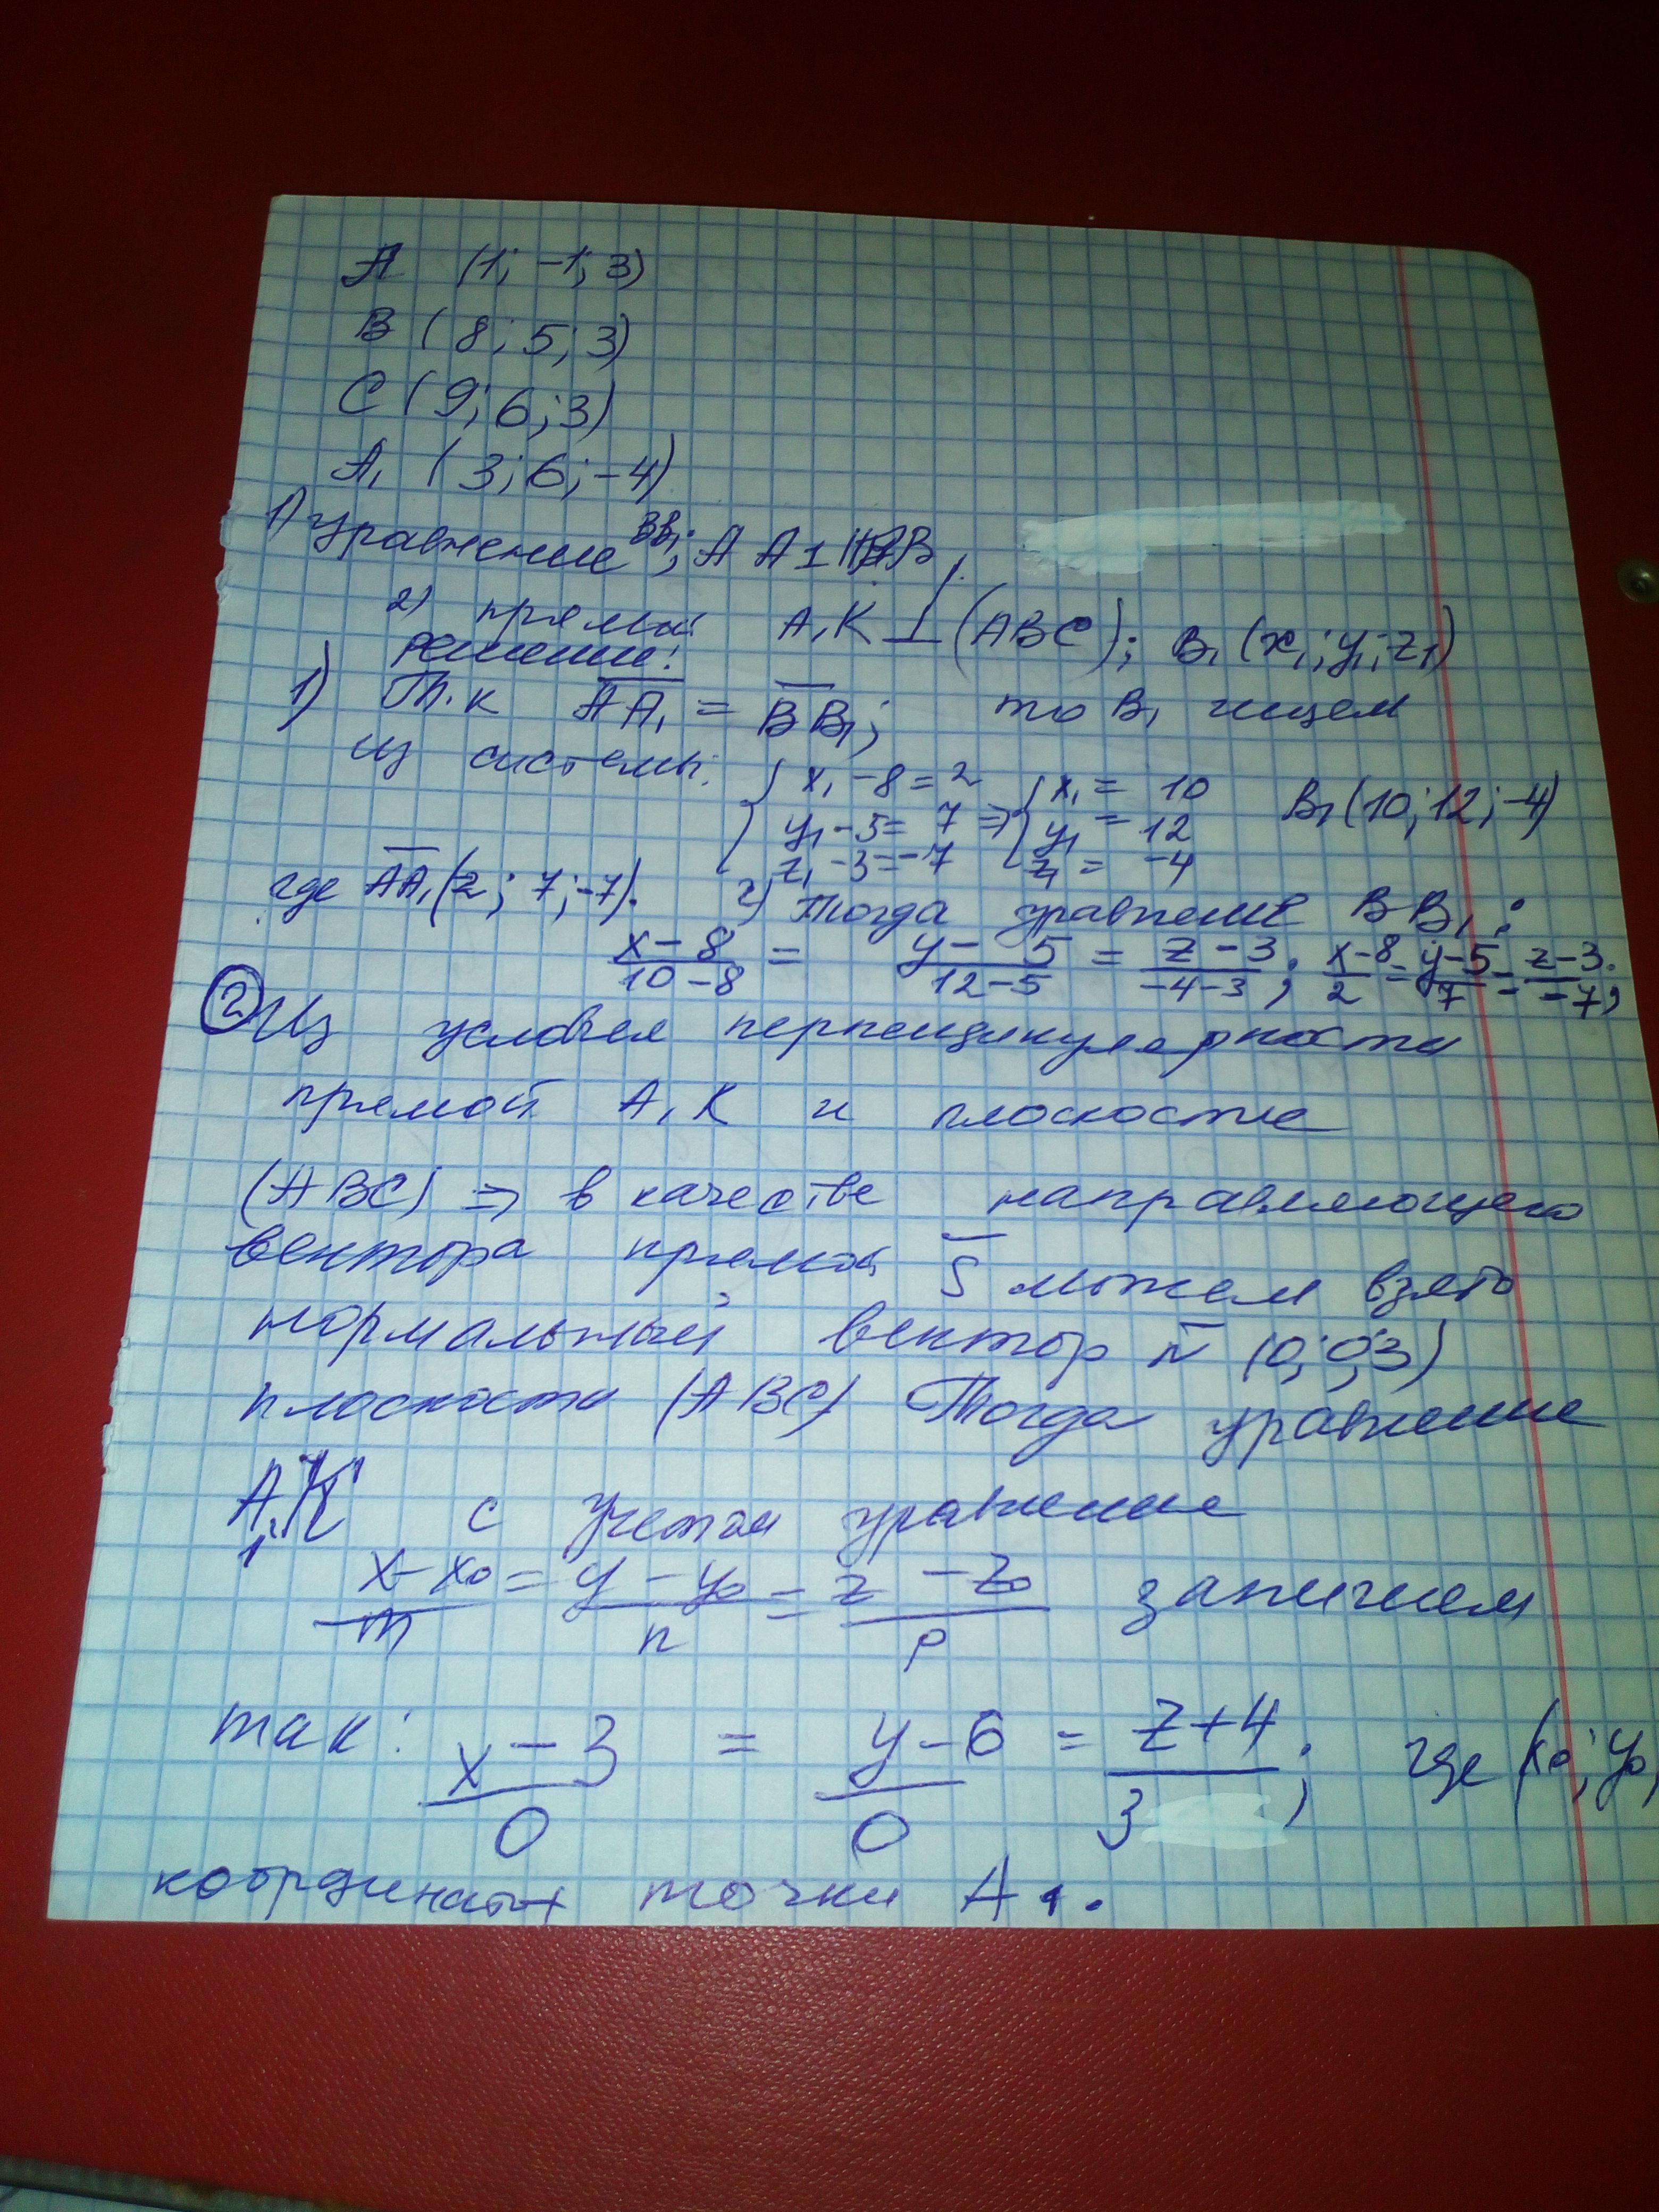 A (1; -1; 3)
B (8; 5; 3)
C (9; 6; 3)
A₁ (3; 6; -4)
1) уравнение BB₁; A A1 || BB
2) прямы A₁K ⊥ (ABC); B₁ (x₁; y₁; z₁)
Решение:
1) Т.к AA₁ = BB₁; то B₁ ищем
из системы: { x₁ - 8 = 2 { x₁ = 10
y₁ - 5 = 7 ⇒ y₁ = 12 B₁ (10; 12; -4)
z₁ - 3 = -7 z₁ = -4
где AA₁ (2; 7; -7). 2) Тогда уравнение BB₁:
x-8/10-8 = y-5/12-5 = z-3/-4-3; x-8/2 = y-5/7 = z-3/-7;
2 Из условия перпендикулярности
прямой A₁K и плоскостие
(ABC) ⇒ в качестве направляющего
вектора прямой S можем взять
нормальный вектор N (0; 0; 3)
плоскости (ABC) Тогда уравнение
A₁K с учетом уравнение
x-x₀/m = y-y₀/n = z-z₀/p запишем
так: x-3/0 = y-6/0 = z+4/3; где (x₀; y₀,
координаты точки A₁.